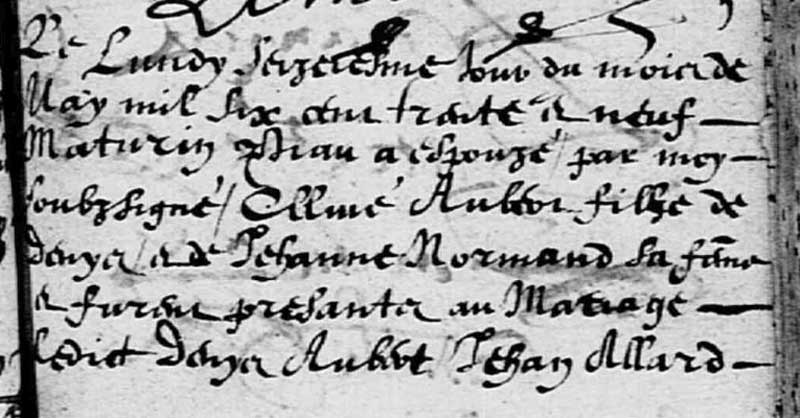 Le Lundy seizeiesme jour du mois de
May mil six cent trente et neuf
Maturin a espouzé par moy
soubzsigné Aubert fillze de
Denys et de Jehanne Normand sa fame
et furent presants au Mariage
ledict Denys Aubert Jehan Allard